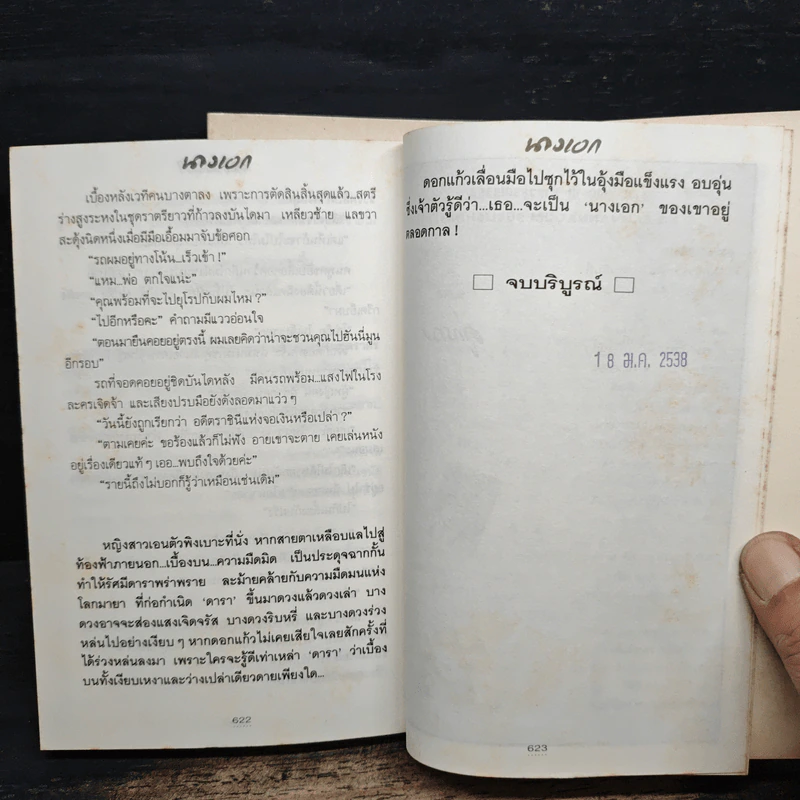 นางเอก
เบื้องหลังเวทีคนบางตาลง เพราะการตัดสินสิ้นสุดแล้ว...สตรี
ร่างสูงระหงในชุดราตรียาวที่ก้าวลงบันไดมา เหลียวซ้าย แลขวา
สะดุ้งนิดหนึ่งเมื่อมีมือเอื้อมมาจับข้อศอก
“รถผมอยู่ทางโน้น...เร็วเข้า!”
“แหม...พ่อ ตกใจแน่ะ”
“คุณพร้อมที่จะไปยุโรปกับผมไหม?”
“ไปอีกหรือคะ” คำถามมีแววอ่อนใจ
“ตอนมายืนคอยอยู่ตรงนี้ ผมเลยคิดว่าน่าจะชวนคุณไปฮันนีมูน
อีกรอบ”
รถที่จอดคอยอยู่ชิดบันไดหลัง มีคนรถพร้อม...แสงไฟในโรง
ละครเจิดจ้า และเสียงปรบมือยังดังลอดมาแว่ว ๆ
“วันนี้ยังถูกเรียกว่า อดีตราชินีแห่งจอเงินหรือเปล่า?”
“ตามเคยค่ะ ขอร้องแล้วก็ไม่ฟัง อายเขาจะตาย เคยเล่นหนัง
อยู่เรื่องเดียวแท้ ๆ เออ...พบถึงใจด้วยค่ะ”
“รายนี้ถึงไม่บอกก็รู้ว่าเหมือนเช่นเดิม”
หญิงสาวเอนตัวพิงเบาะที่นั่ง หากสายตาเหลือบแลไปสู่
ท้องฟ้าภายนอก...เบื้องบน...ความมืดมิด เป็นประดุจฉากกั้น
ทำให้รัศมีดาราพร่าพราย ละม้ายคล้ายกับความมืดมนแห่ง
โลกมายา ที่ก่อกำเนิด ‘ดารา’ ขึ้นมาดวงแล้วดวงเล่า บาง
ดวงอาจจะส่องแสงเจิดจรัส บางดวงริบหรี่ และบางดวงร่วง
หล่นไปอย่างเงียบ ๆ หากดอกแก้วไม่เคยเสียใจเลยสักครั้งที่
ได้ร่วงหล่นลงมา เพราะใครจะรู้ดีเท่าเหล่า ‘ดารา’ ว่าเบื้อง
บนทั้งเงียบเหงาและว่างเปล่าเดียวดายเพียงใด...
622
นางเอก
ดอกแก้วเลื่อนมือไปซุกไว้ในอุ้งมือแข็งแรง อบอุ่น
ซึ่งเจ้าตัวรู้ดีว่า...เธอ...จะเป็น ‘นางเอก’ ของเขาอยู่
ตลอดกาล!
□ จบบริบูรณ์ □
18 ม.ค. 2538
623